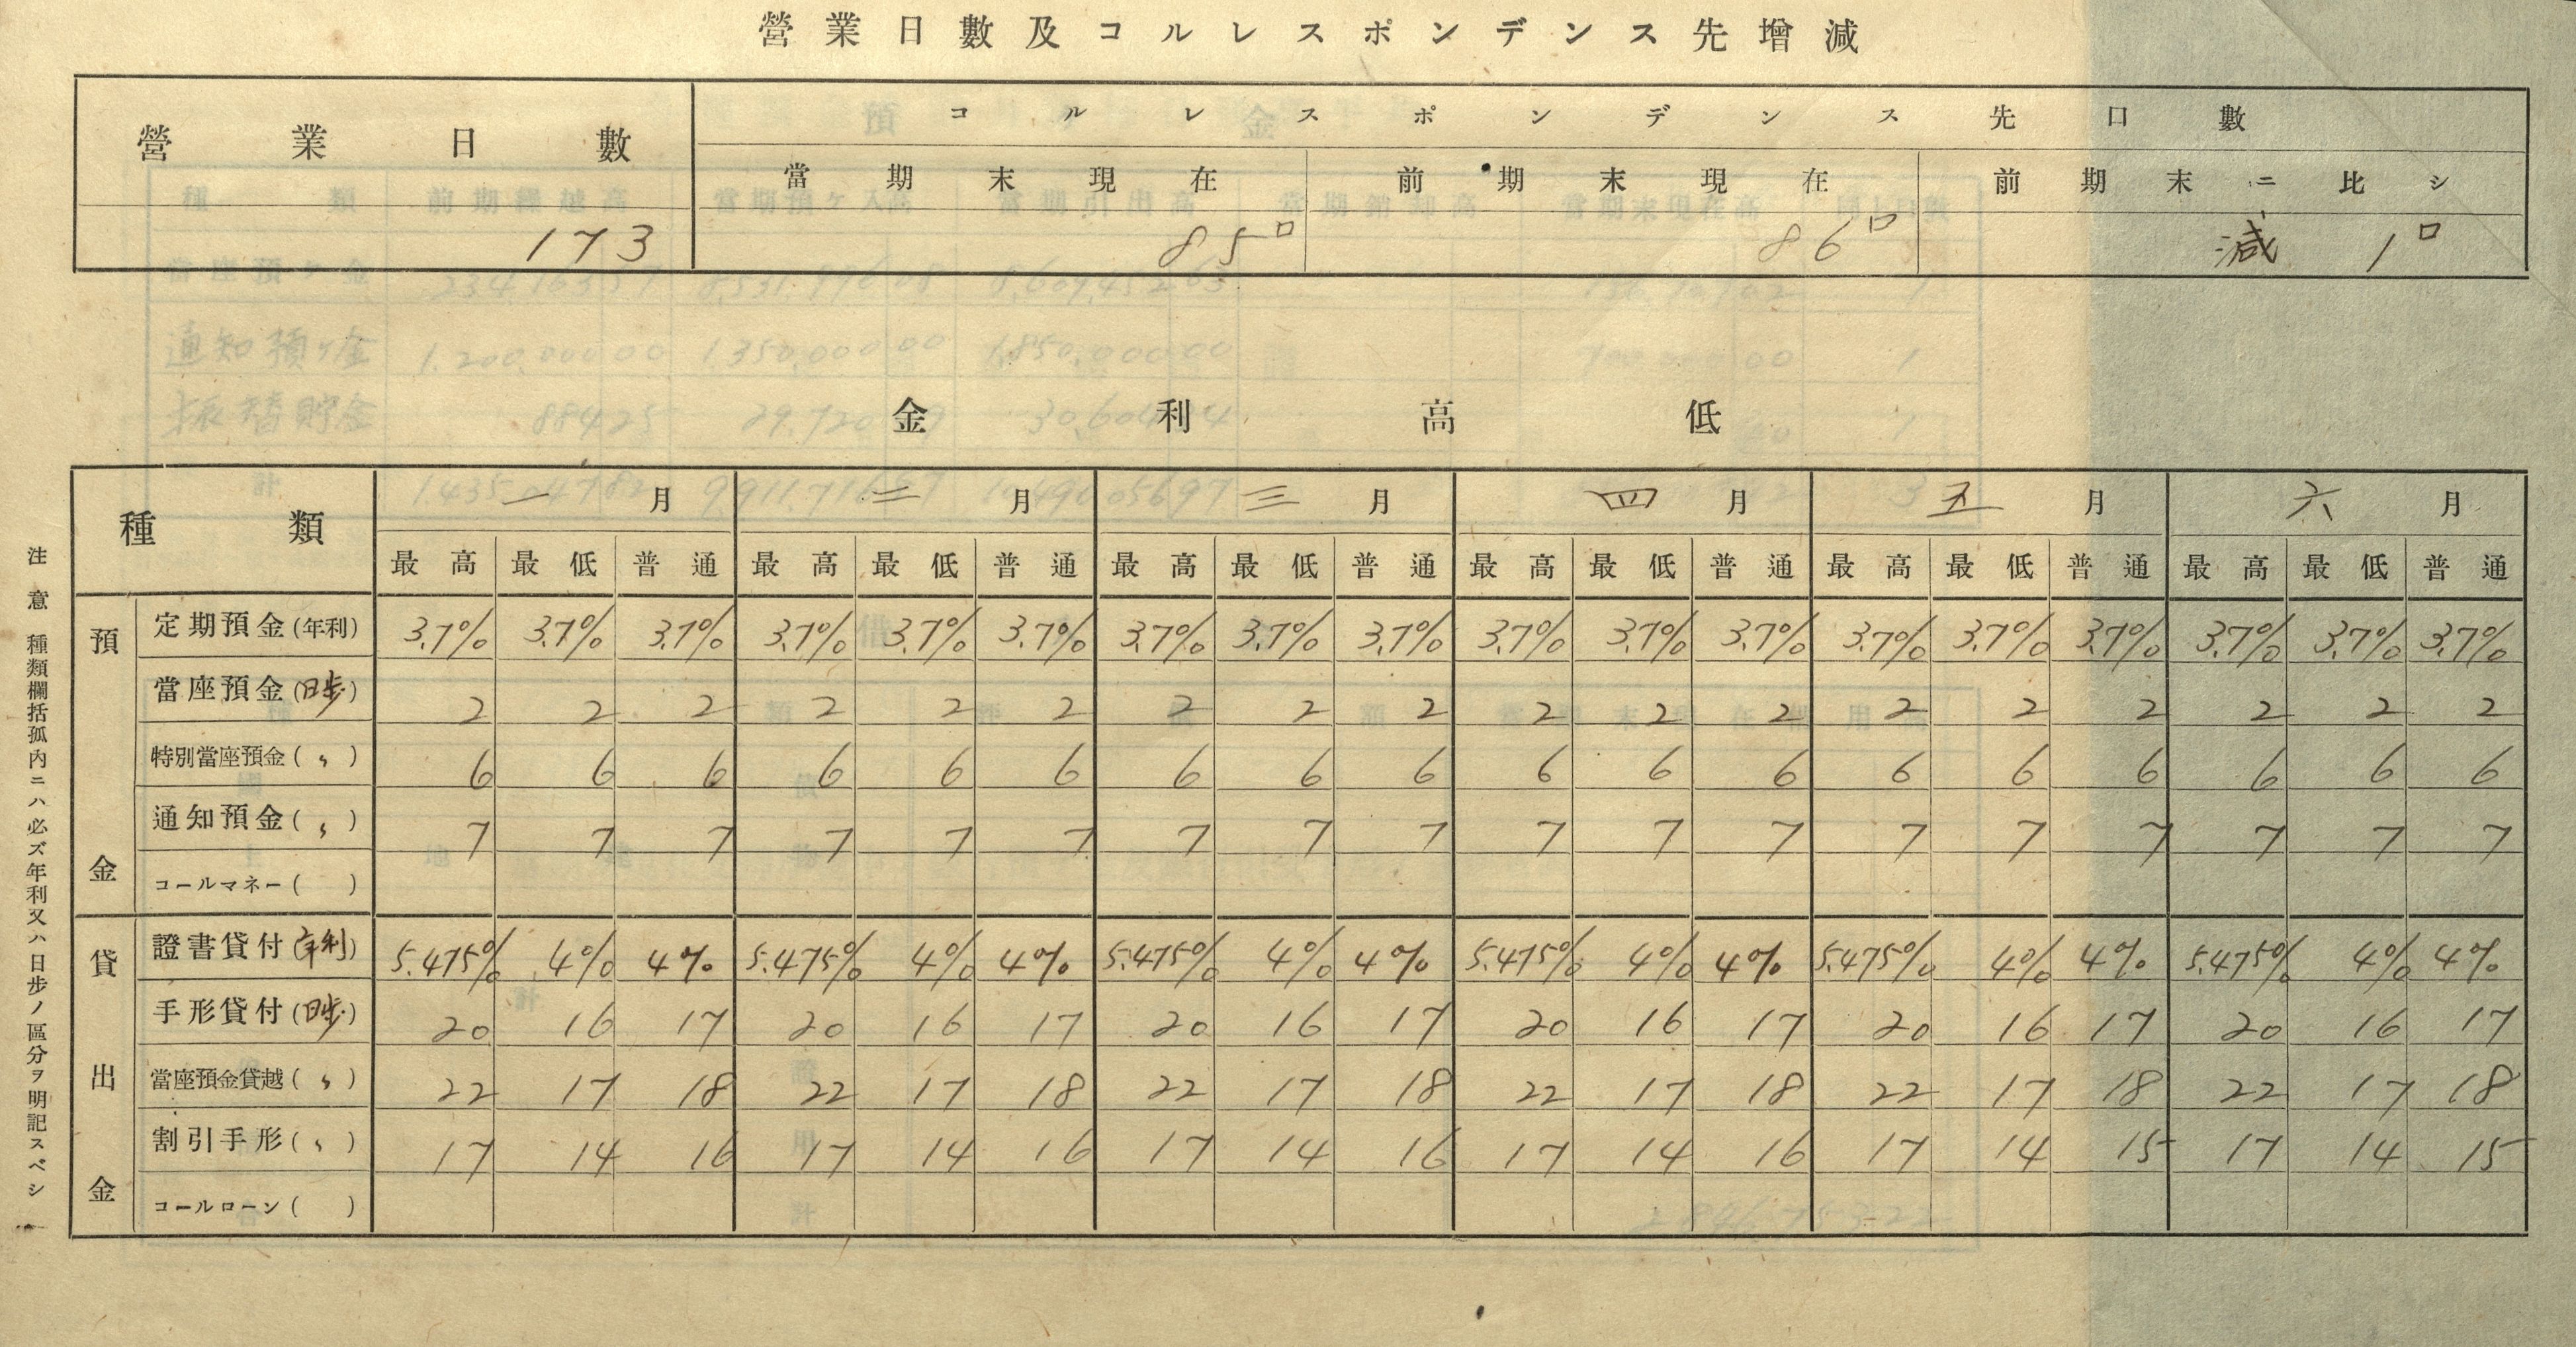 營業日數及コルレスポンデンス先增減
營業日數 コルレスポンデンス先口數
當期末現在 前期末現在 前期末ニ比シ
173 85口 86口 減 1口
金利高低
種類 一月 二月 三月 四月 五月 六月
最高 最低 普通 最高 最低 普通 最高 最低 普通 最高 最低 普通 最高 最低 普通 最高 最低 普通
預金
定期預金(年利) 3.7% 3.7% 3.7% 3.7% 3.7% 3.7% 3.7% 3.7% 3.7% 3.7% 3.7% 3.7% 3.7% 3.7% 3.7% 3.7% 3.7% 3.7%
當座預金(日歩) 2 2 2 2 2 2 2 2 2 2 2 2 2 2 2 2 2 2
特別當座預金(〃) 6 6 6 6 6 6 6 6 6 6 6 6 6 6 6 6 6 6
通知預金(〃) 7 7 7 7 7 7 7 7 7 7 7 7 7 7 7 7 7 7
コールマネー( )
貸出金
證書貸付(年利) 5.475% 4% 4% 5.475% 4% 4% 5.475% 4% 4% 5.475% 4% 4% 5.475% 4% 4% 5.475% 4% 4%
手形貸付(日歩) 20 16 17 20 16 17 20 16 17 20 16 17 20 16 17 20 16 17
當座預金貸越(〃) 22 17 18 22 17 18 22 17 18 22 17 18 22 17 18 22 17 18
割引手形(〃) 17 14 16 17 14 16 17 14 16 17 14 16 17 14 15 17 14 15
コールローン( )
注意 種類欄括孤內ニハ必ズ年利又ハ日步ノ區分ヲ明記スベシ